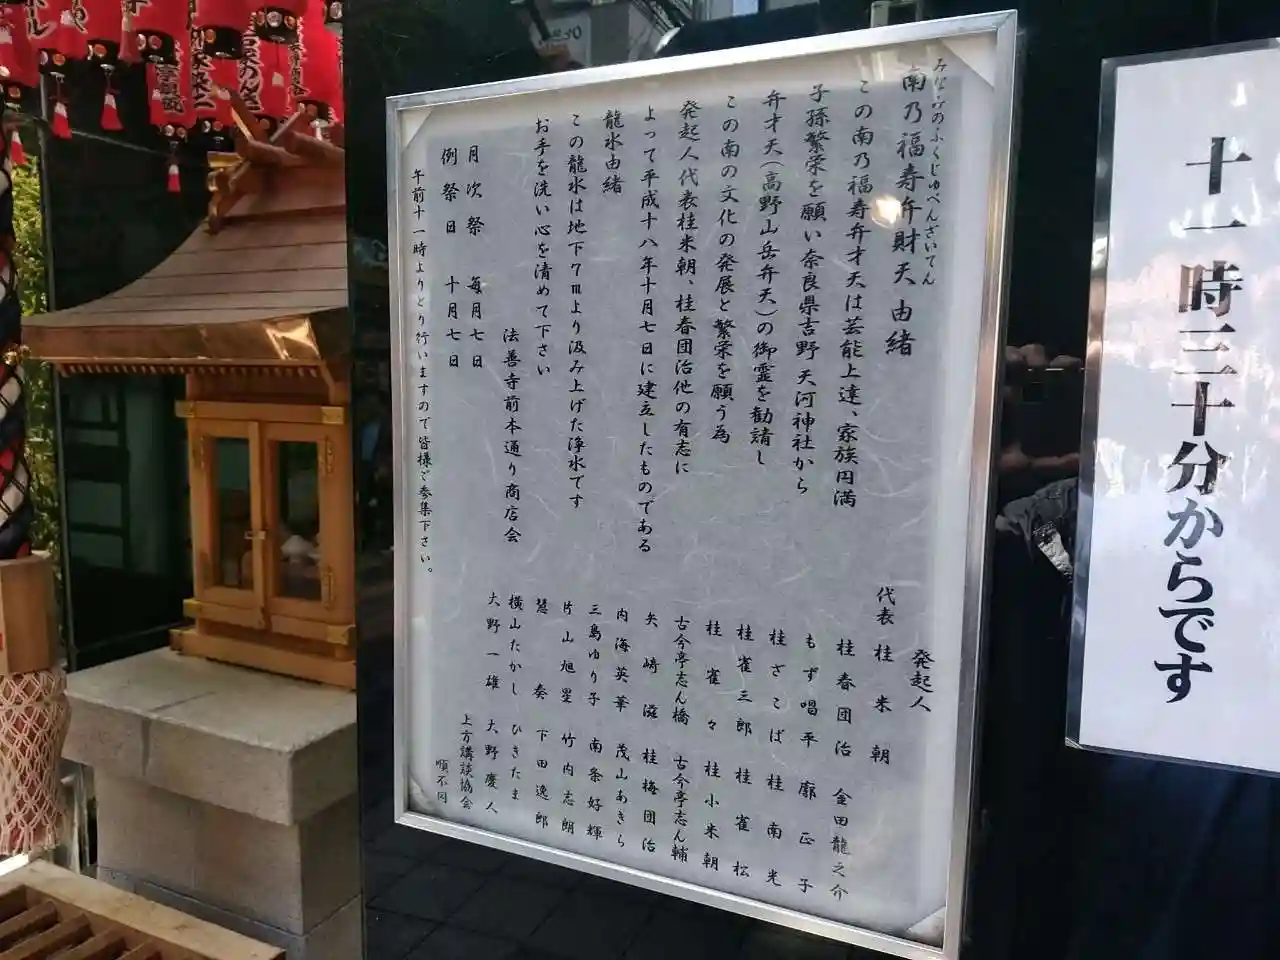 みなみのふくじゅべんざいてん
南乃福寿弁財天 由緒
この南乃福寿弁才天は芸能上達、家族円満
子孫繁栄を願い奈良県吉野天河神社から
弁才天(高野山岳弁天)の御霊を勧請し
この南の文化の発展と繁栄を願う為
発起人代表桂米朝、桂春団治他の有志に
よって平成十八年十月七日に建立したものである
龍水由緒
この龍水は地下7mより汲み上げた浄水です
お手を洗い心を清めて下さい
法善寺前本通り商店会
月次祭 毎月七日
例祭日 十月七日
午前十一時よりとり行いますので皆様ご参集下さい。
発起人
代表 桂米朝
桂春団治 金田龍之介
もず唱平 廓正子
桂ざこば 桂南光
桂雀三郎 桂雀松
桂雀々 桂小米朝
古今亭志ん橋 古今亭志ん輔
矢崎滋 桂梅団治
内海英華 茂山あきら
三島ゆり子 南条好輝
片山旭星 竹内志朗
慧奏 下田逸郎
横山たかし ひきたま
大野一雄 大野慶人
上方講談協会
順不同
十一時三十分からです